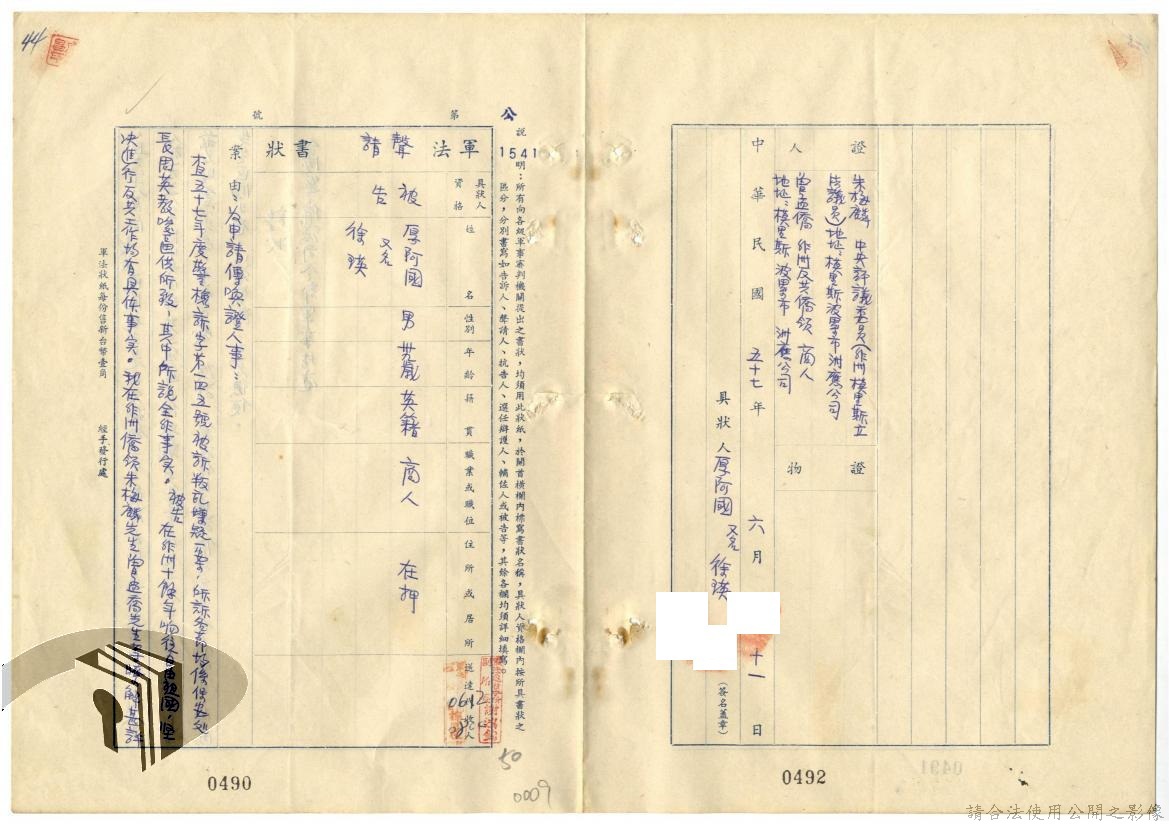 44
公
第 號
1541
說明：所有向各級軍事審判機關提出之書狀，均須用此狀紙，於開首橫欄內標寫書狀名稱，具狀人資格欄內按所具書狀之
區分，分別書寫如告訴人、聲請人、抗告人、選任辯護人、輔佐人或被告等，其餘各欄均須詳細填寫。
軍法聲請書狀
具狀人資格 姓名 性別 年齡 籍貫 職業或職位 住所或居所 送達代收人
被告 厚阿國 又名 徐瑛 男 英籍 商人 在押
案由：為申請傳喚證人事：
查五十七年度警檢訴字第一四五號被訴叛亂嫌疑一案，所訴各節均係保安處處
長周英教唆逼供所致，其中所說全非事實。被告在非洲十餘年响往自由祖國，堅
決進行反共工作均有具体事实。現在非洲僑領朱梅麟先生曾孟僑先生等瞭解甚詳
軍法狀紙每份售新台幣壹角 經手發行處
0612
0490
50
0009
證人
朱梅麟 中央評議委員(非洲模里斯立
法議員)地址：模里斯波累市 洲應公司
曾孟僑 非洲反共僑領 商人
地址：模里斯波累市 洲應公司
證物
中華民國五十七年六月十一日
具狀人 厚阿國 又名 徐瑛 (簽名蓋章)
0492
0491
請合法使用公開之影像